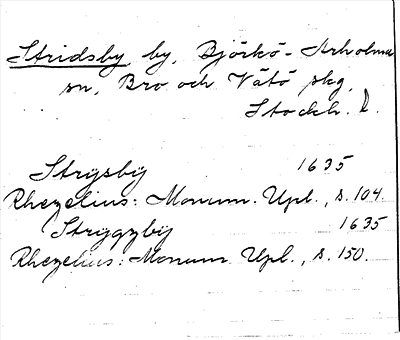 Stridsby by, Björkö-Arholma
sn, Bro och Vätö skg,
Stockh. L.
Strysby 1635
Rhezelius: Monum. Upl., s. 104.
Strygzby 1635
Rhezelius: Monum. Upl., s. 150.